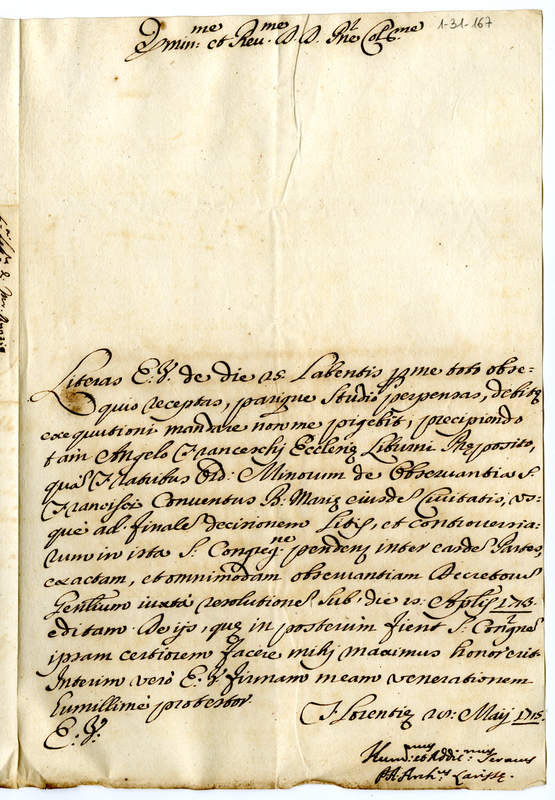 1-31-167
Emin:me et Reu:me D. D. Pne Col:me
Literas E. V. de die 25 Labentis p me toto obse-
quio receptas, parique studio perpensas, debitę
exequutioni mandare non me pigebit, precipiendo
tam Angelo Franceschi Ecclesię Liburni Pręposito,
quā Fratribus Ord: Minorum de Obseruantia S.
Francisci Conuentus B. Marię eiusdē Ciuitatis, us-
que ad finalē decisionem Litis, et controuersia-
rum in ista S. Congreg:ne pendenz inter easdē Partes,
exactam, et omnimodam obseruantiam Decretorū
Genlium iuxtà resolutionē sub die 15: Aplis 1713.
editam. De ijs, quę in posterum fient S. Congnē
ipsam certiorem facere mihi maximus honor erit
Interim verò E. V. firmam meam venerationem
humillimè protestor
E. V.
Florentię 28: Maij 1715.
Humi:mus et Addic:mus Seruus
Archi:us Larissę.